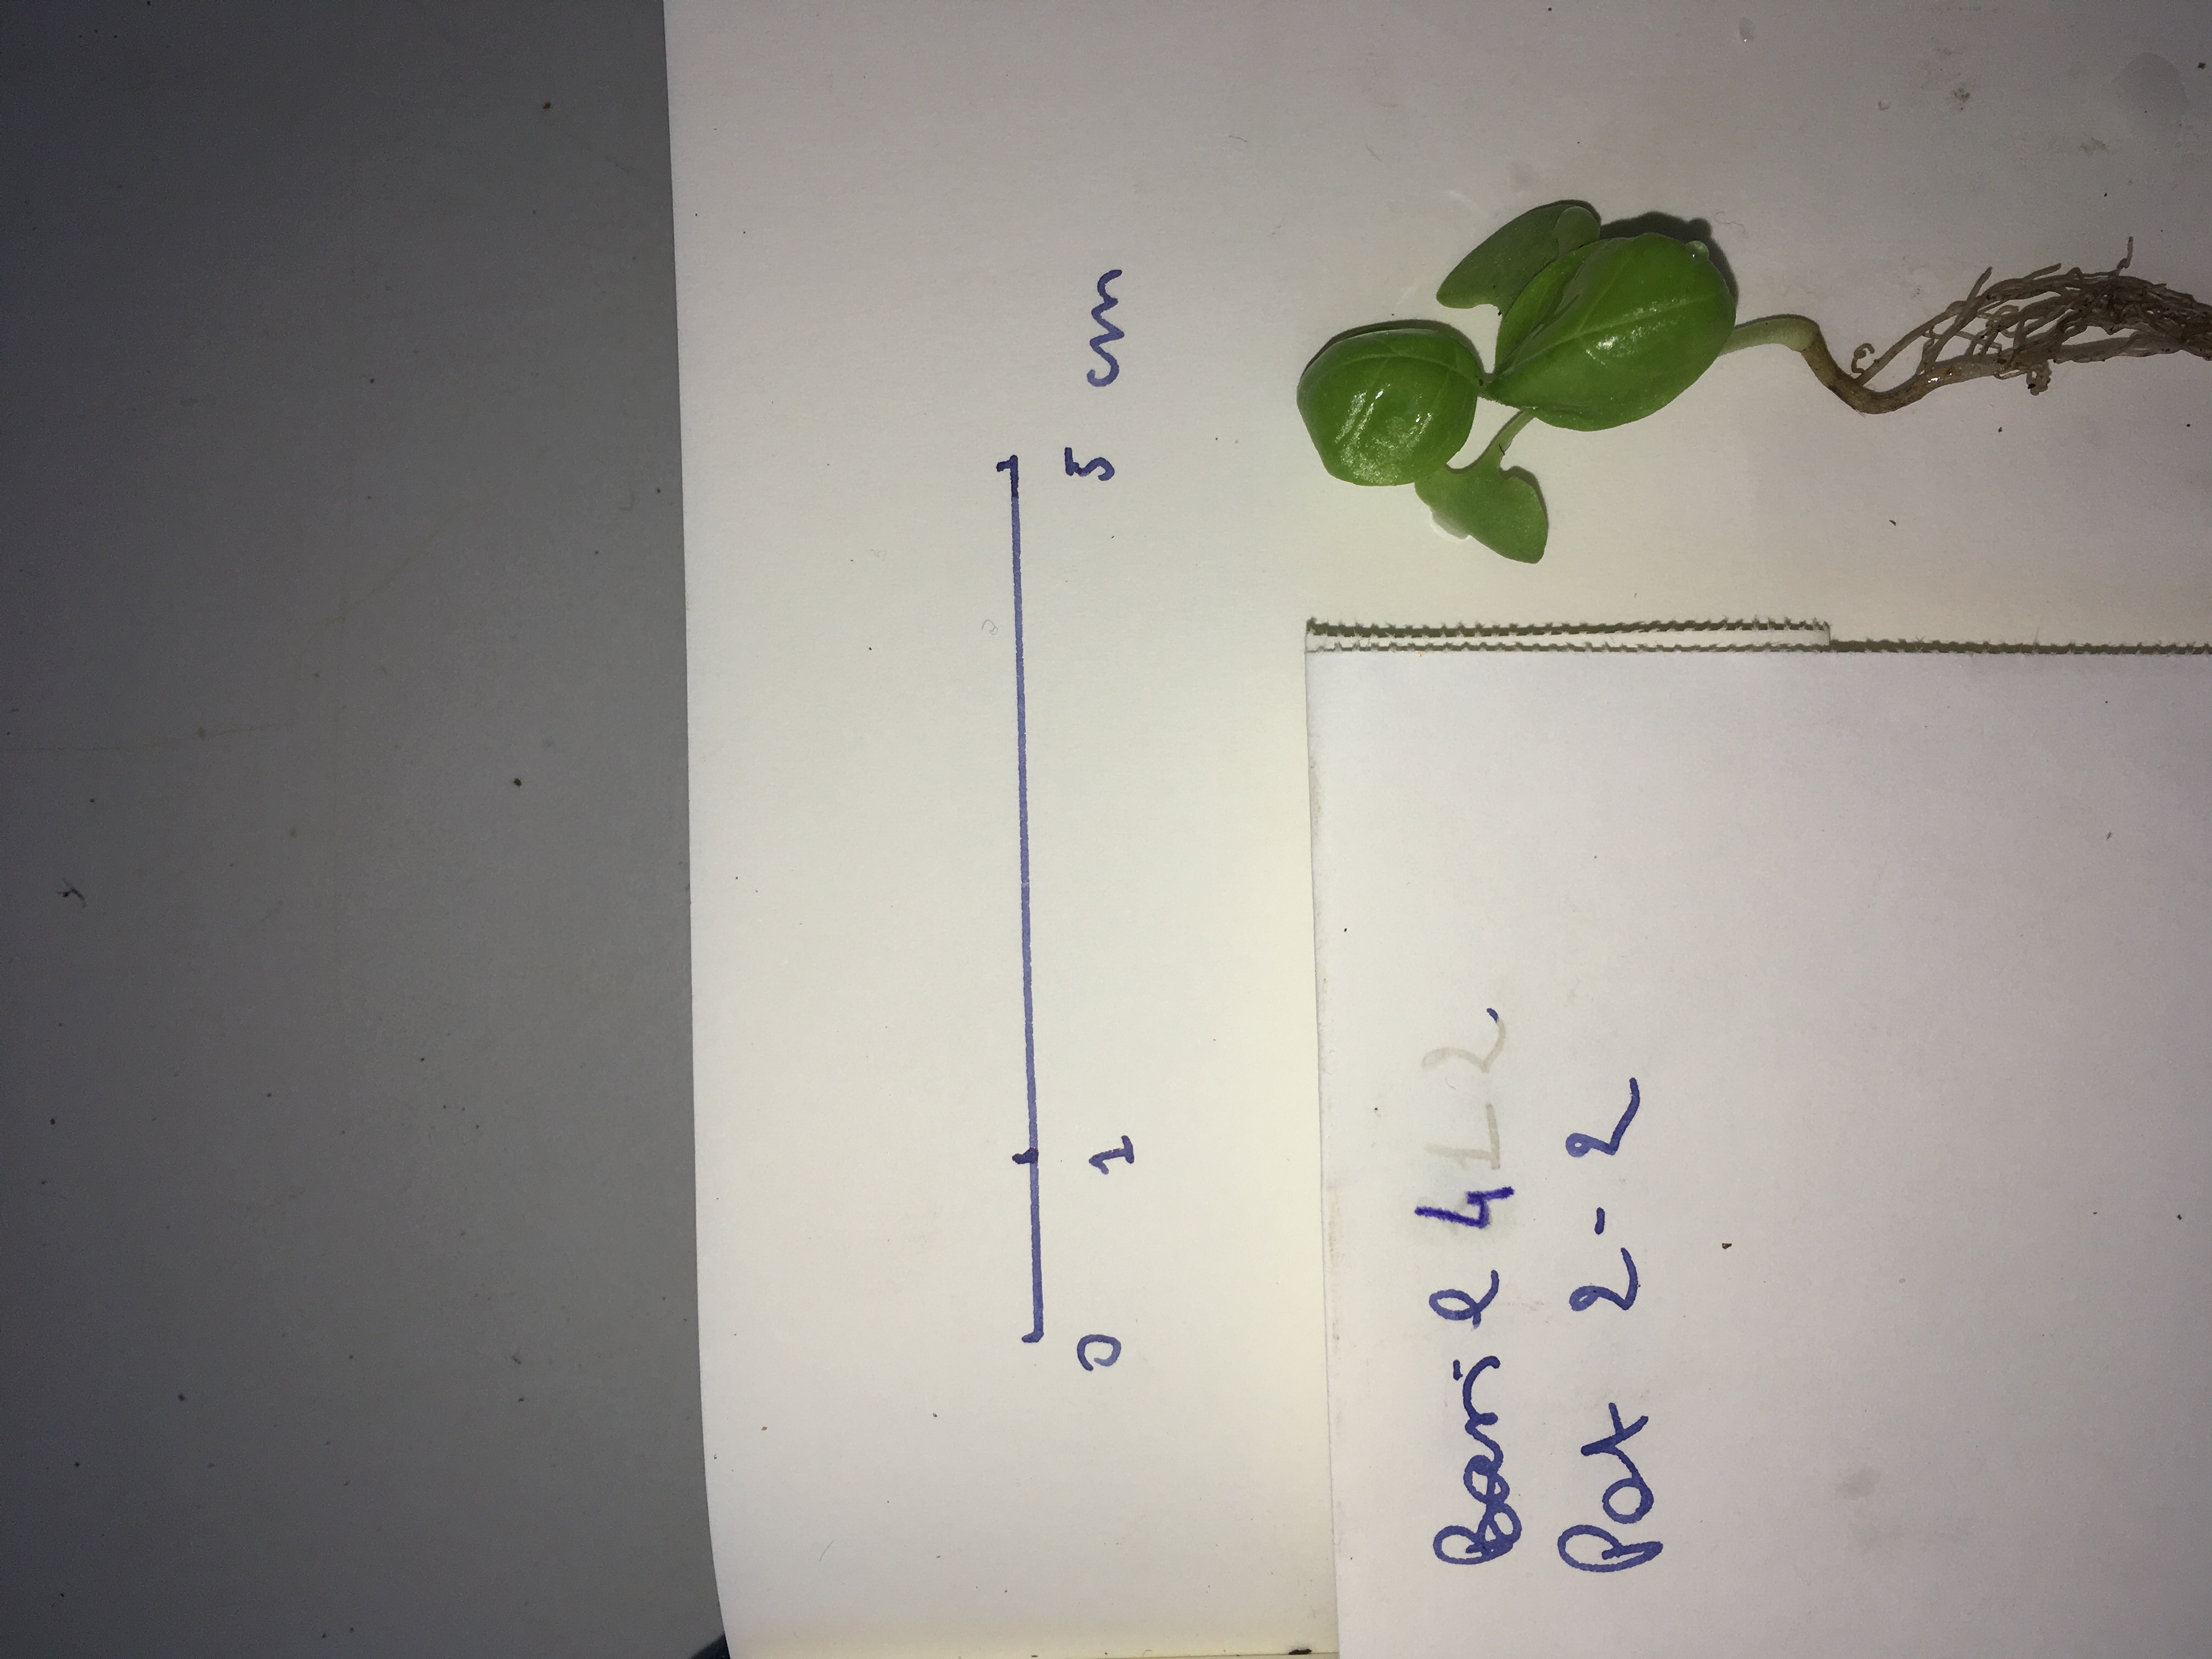 0 1 5 cm
Basil 4 1 2
Pot 2-2